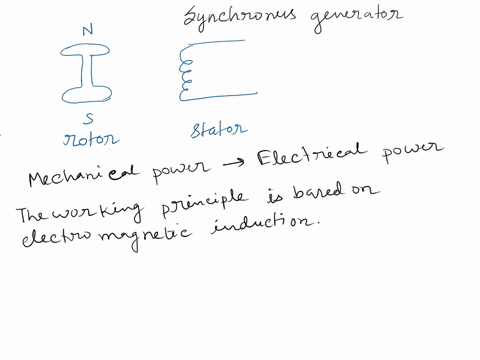 Synchronus generator
N
S
rotor
stator
Mechanical power → Electrical power
The working principle is based on
electro magnetic induction.